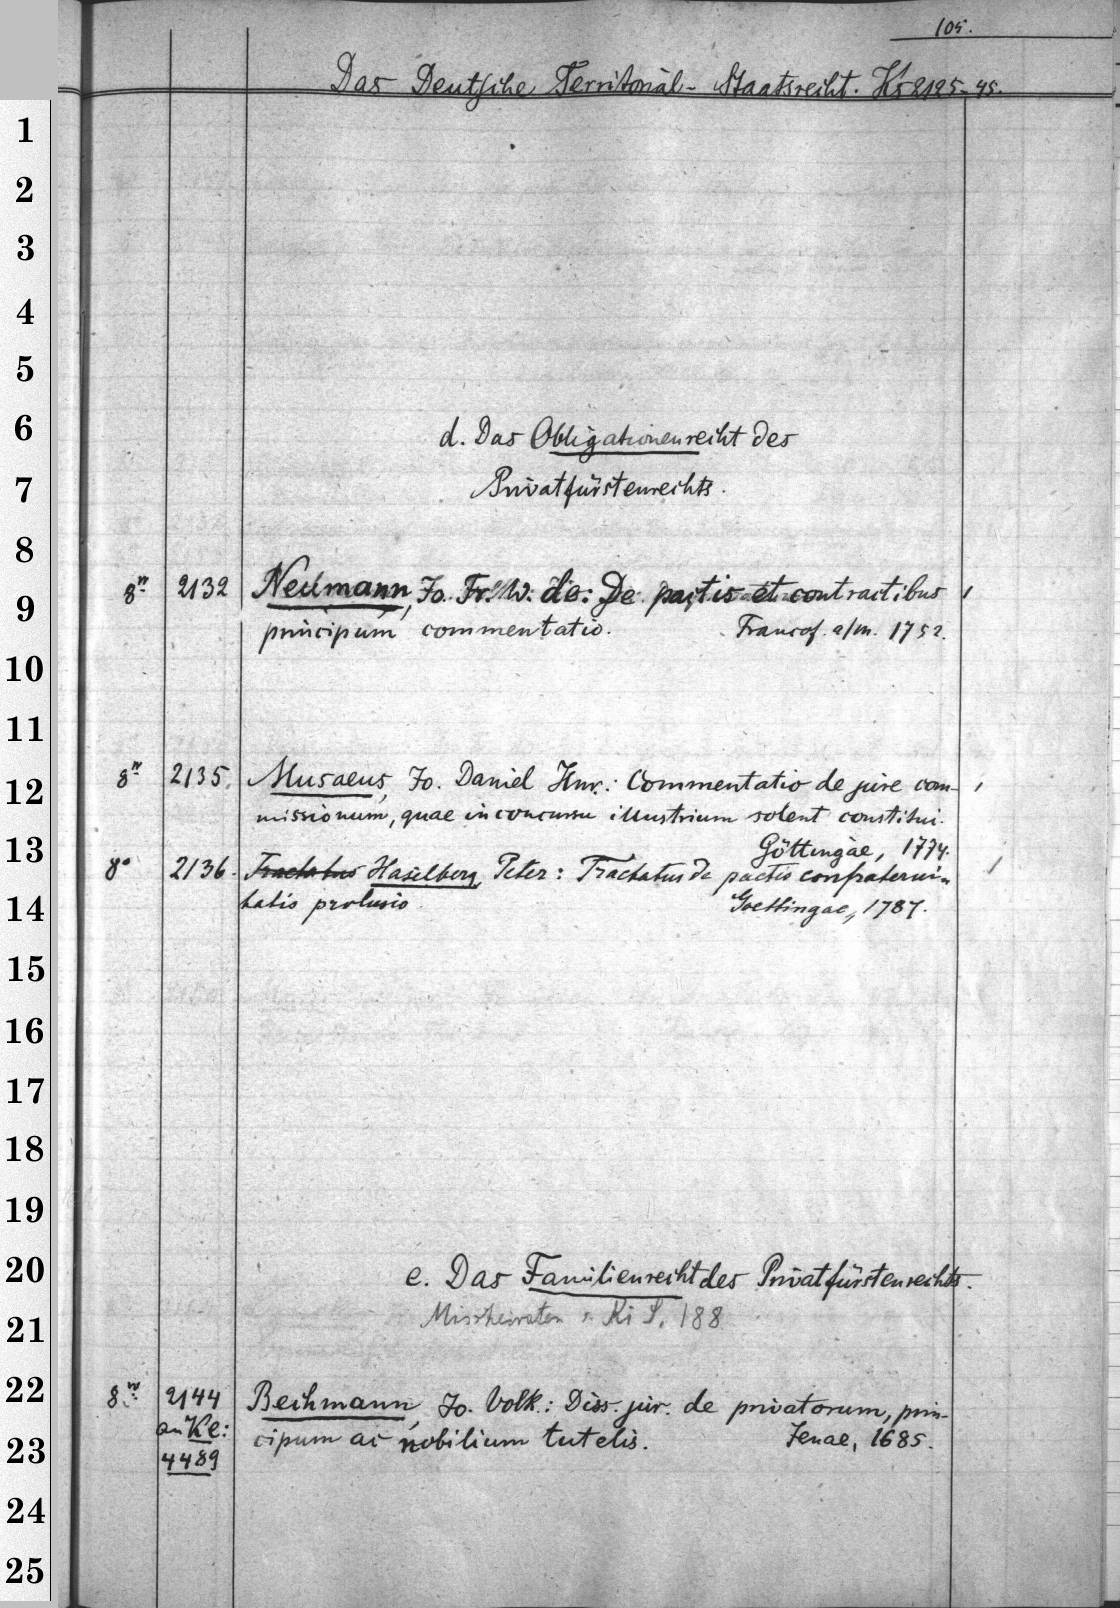 105.
Das Deutsche Territorial-Staatsrecht. Ks 2125-45.
1
2
3
4
5
6 d. Das Obligationenrecht des
7 Privatfürstenrechts.
8
9 8° 2132 Neumann, Jo. Fr. W. de: De pactis et contractibus
principum commentatio. Francof. a/m. 1752.
10
11
12 8° 2135. Musaeus, Jo. Daniel Hnr.: Commentatio de jure com-
missionum, quae in concursu illustrium solent constitui.
13 Göttingae, 1774.
8° 2136. Tractatus Haselberg, Peter: Tractatus de pactis confraterni-
14 tatis prolusio. Goettingae, 1787.
15
16
17
18
19
20 e. Das Familienrecht des Privatfürstenrechts.
21 Missheiraten s. Ki S. 188
22 8° 2144 Bechmann, Jo. Volk.: Diss. jur. de privatorum, prin-
an Ke:
23 cipum ac nobilium tutelis. Jenae, 1685.
4489
24
25